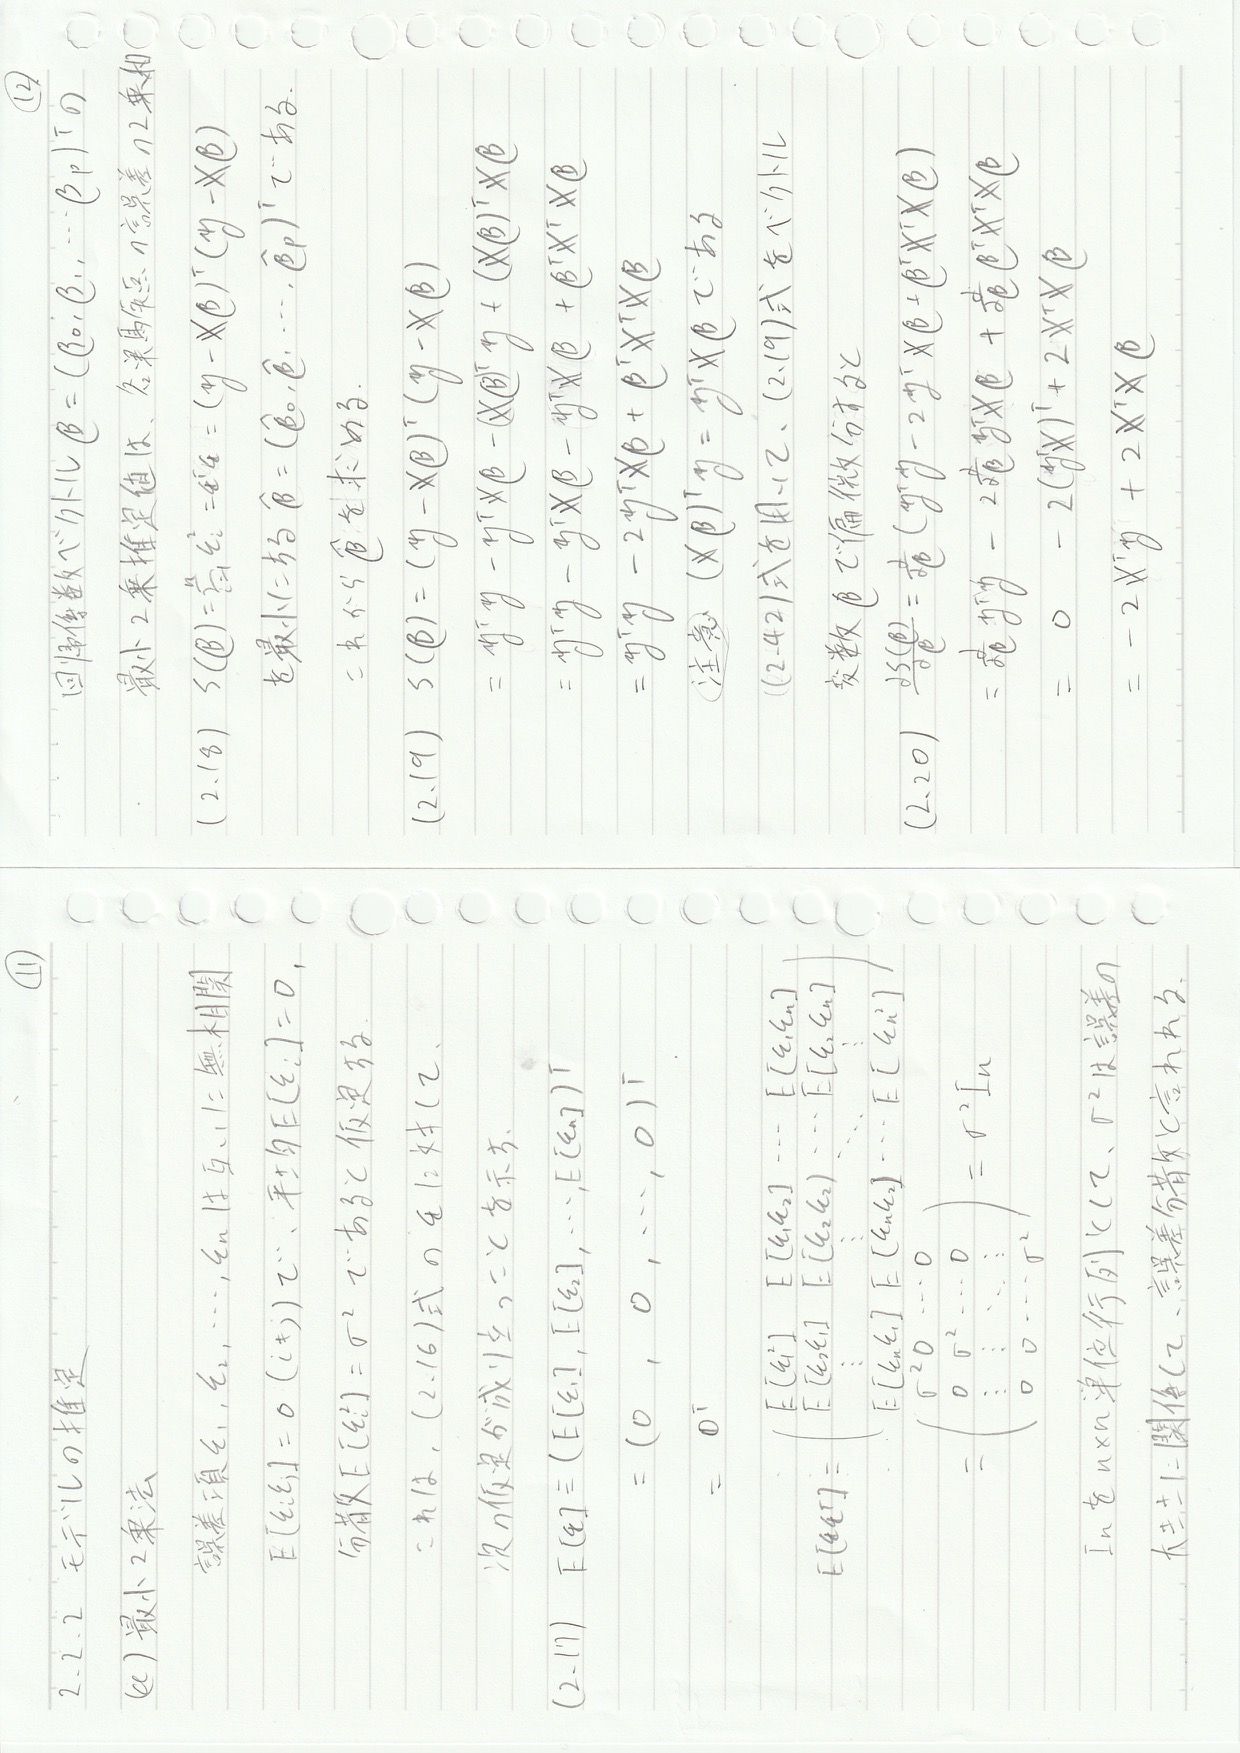 ⑪
2.2.2 モデルの推定
(a) 最小2乗法
誤差項 ε₁, ε₂, ⋯, εn は互いに無相関
E[εiεj] = 0 (i≠j) で、平均 E[εi] = 0,
分散 E[εi²] = σ² であると仮定する.
これは, (2.16)式の ε に対して、
次の仮定が成り立つことを示す.
(2.17) E[ε] ≡ (E[ε₁], E[ε₂], ⋯, E[εn])ᵀ
= (0 , 0 , ⋯, 0)ᵀ
= 0ᵀ
E[ε₁²] E[ε₁ε₂] ⋯ E[ε₁εn]
E[εεᵀ] = E[ε₂ε₁] E[ε₂ε₂) ⋯ E[ε₂εn]
⋮ ⋮ ⋱ ⋮
E[εnε₁] E[εnε₂] ⋯ E[εn²]
σ² 0 ⋯ 0
= 0 σ² ⋯ 0 = σ²In
⋮ ⋮ ⋱ ⋮
0 0 ⋯ σ²
In を n×n 単位行列として、σ²は誤差の
大きさに関係して、誤差分散と言われる.
⑫
回帰係数ベクトル β = (β₀, β₁, ⋯ βp)ᵀ の
最小2乗推定値は、各 の誤差の2乗和
(2.18) S(β) = Σⁿᵢ₌₁ εi² = εᵀε = (y − Xβ)ᵀ(y − Xβ)
を最小にする β̂ = (β̂₀, β̂₁ ⋯, β̂p)ᵀ である.
これから β̂ を求める.
(2.19) S(β) = (y − Xβ)ᵀ(y − Xβ)
= yᵀy − yᵀXβ − (Xβ)ᵀy + (Xβ)ᵀXβ
= yᵀy − yᵀXβ − yᵀXβ + βᵀXᵀXβ
= yᵀy − 2yᵀXβ + βᵀXᵀXβ
注意 (Xβ)ᵀy = yᵀXβ である
(2.42)式を用いて、(2.19)式をベクトル
変数 β で偏微分すると
(2.20) ∂S(β)/∂β = ∂/∂β (yᵀy − 2yᵀXβ + βᵀXᵀXβ)
= ∂/∂β yᵀy − 2 ∂/∂β yᵀXβ + ∂/∂β βᵀXᵀXβ
= 0 − 2(yᵀX)ᵀ + 2XᵀXβ
= −2Xᵀy + 2XᵀXβ